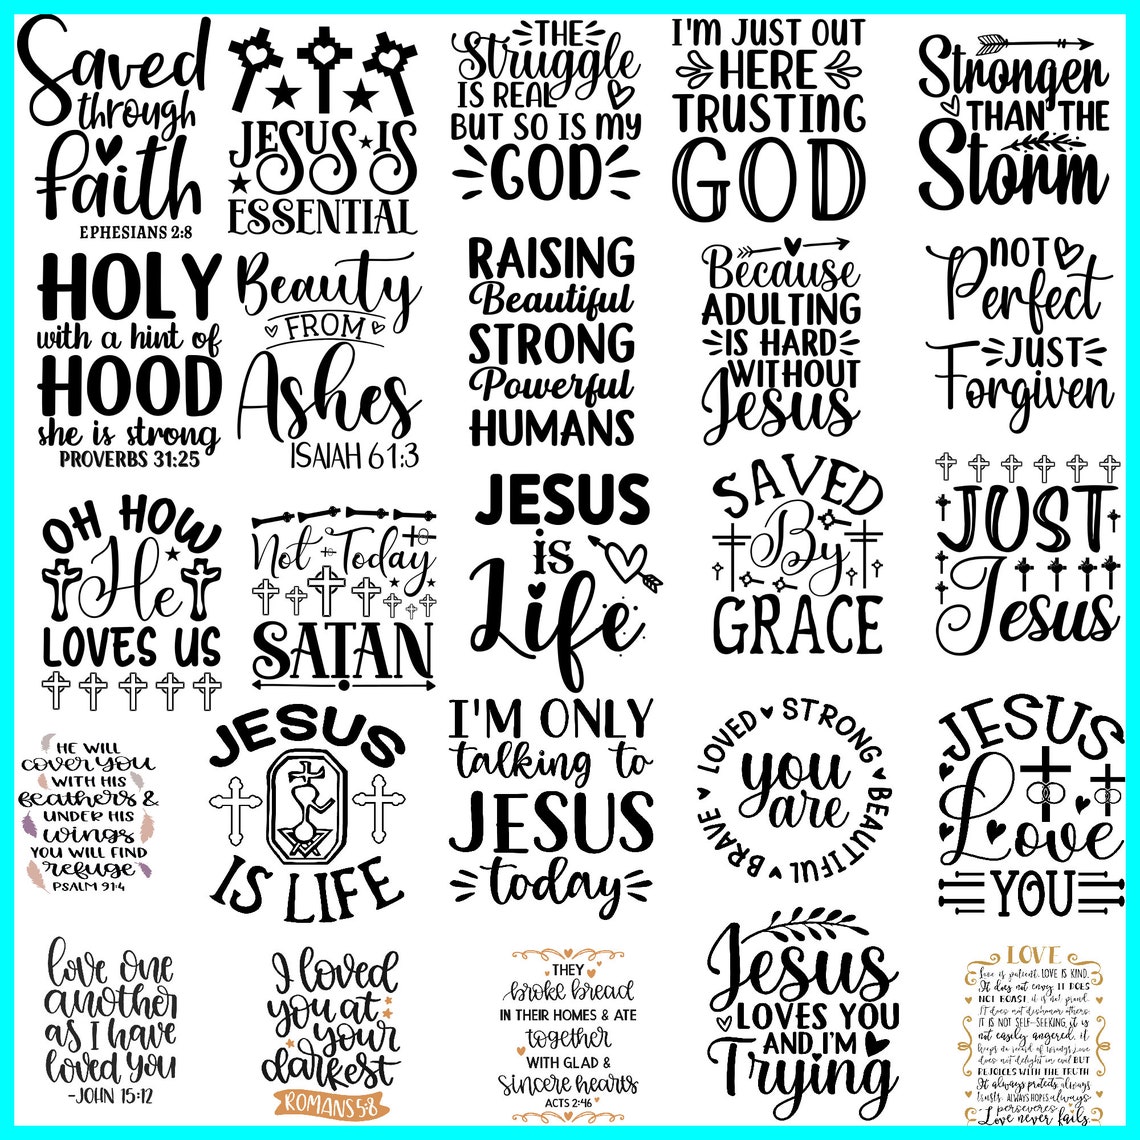 Saved
through
faith
EPHESIANS 2:8
JESUS IS
ESSENTIAL
THE
Struggle
IS REAL
BUT SO IS MY
GOD
I'M JUST OUT
HERE
TRUSTING
GOD
Stronger
THAN THE
Storm
HOLY
with a hint of
HOOD
she is strong
PROVERBS 31:25
Beauty
FROM
Ashes
ISAIAH 61:3
RAISING
Beautiful
STRONG
Powerful
HUMANS
Because
ADULTING
IS HARD
WITHOUT
Jesus
NOT
Perfect
JUST
Forgiven
OH HOW
He
LOVES US
Not Today
SATAN
JESUS
is
Life
SAVED
By
GRACE
JUST
Jesus
HE WILL
cover you
WITH HIS
feathers &
UNDER HIS
wings
YOU WILL FIND
refuge
PSALM 91:4
JESUS
IS LIFE
I'M ONLY
talking to
JESUS
today
LOVED STRONG BEAUTIFUL BRAVE
you
are
JESUS
Love
YOU
love one
another
as I have
loved you
-JOHN 15:12
I loved
you at
your
darkest
ROMANS 5:8
THEY
broke bread
IN THEIR HOMES & ATE
together
WITH GLAD &
sincere hearts
ACTS 2:46
Jesus
LOVES YOU
AND I'M
Trying
LOVE
Love is patient, LOVE IS KIND.
It does not envy IT DOES
NOT BOAST, it is not proud.
IT does not dishonor others.
IT IS NOT SELF-SEEKING, it is
not easily angered, it
keeps no record of wrongs. Love
does not delight in evil BUT
REJOICES WITH THE TRUTH
It always protects, always
trusts, ALWAYS HOPES, always
perseveres.
Love never fails.